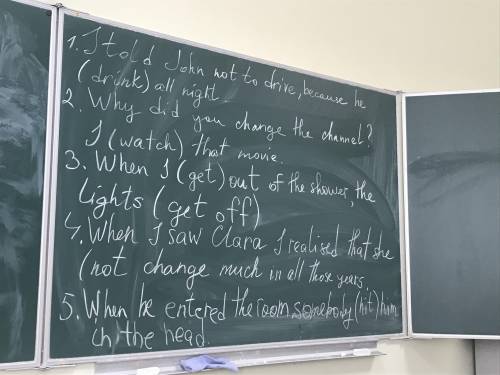 1. I told John not to drive, because he
(drink) all night.
2. Why did you change the channel?
I (watch) that movie.
3. When I (get) out of the shower, the
lights (get off)
4. When I saw Clara I realised that she
(not change much in all those years.
5. When he entered the room somebody (hit) him
in the head.